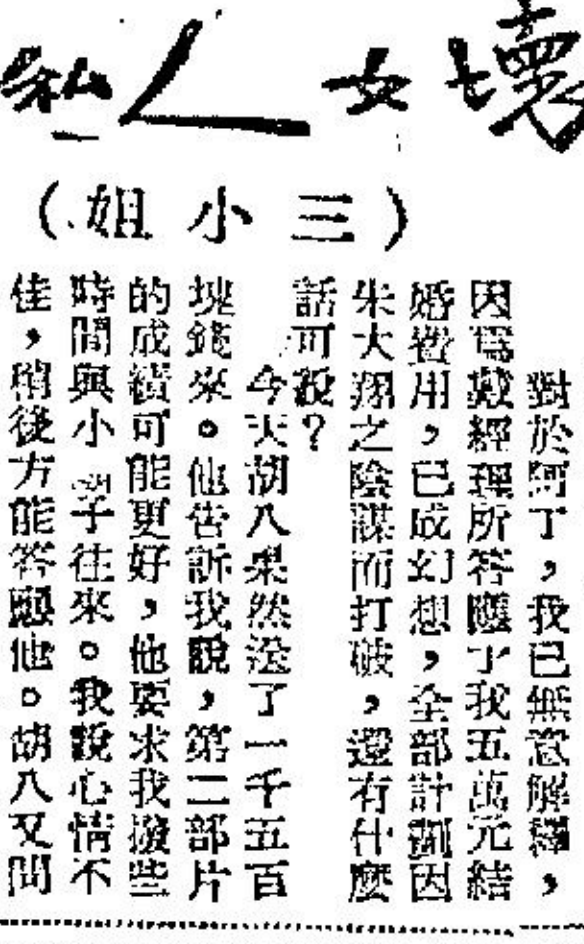 壞女人 私
（三小姐）
對於阿丁，我已無意解釋，
因爲戴經理所答應了我五萬元結
婚費用，已成幻想，全部計劃因
朱大翔之陰謀而打破，還有什麼
話可說？
今天胡八果然送了一千五百
塊錢來。他告訴我說，第二部片
的成績可能更好，他要求我撥些
時間與小子往來。我說心情不
佳，稍後方能答應他。胡八又問